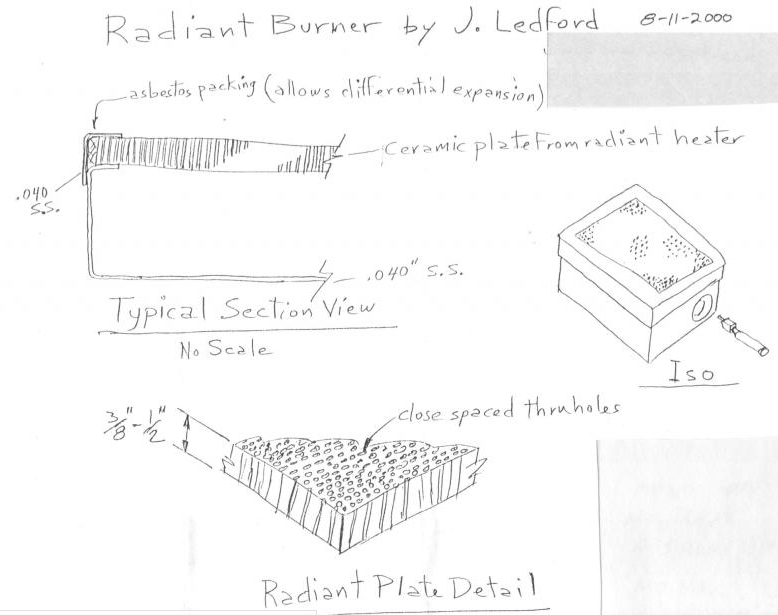 Radiant Burner by J. Ledford 8-11-2000
asbestos packing (allows differential expansion)
Ceramic plate From radiant heater
.040
S.S.
.040" S.S.
Typical Section View
No Scale
Iso
3/8" - 1/2"
close spaced thruholes
Radiant Plate Detail